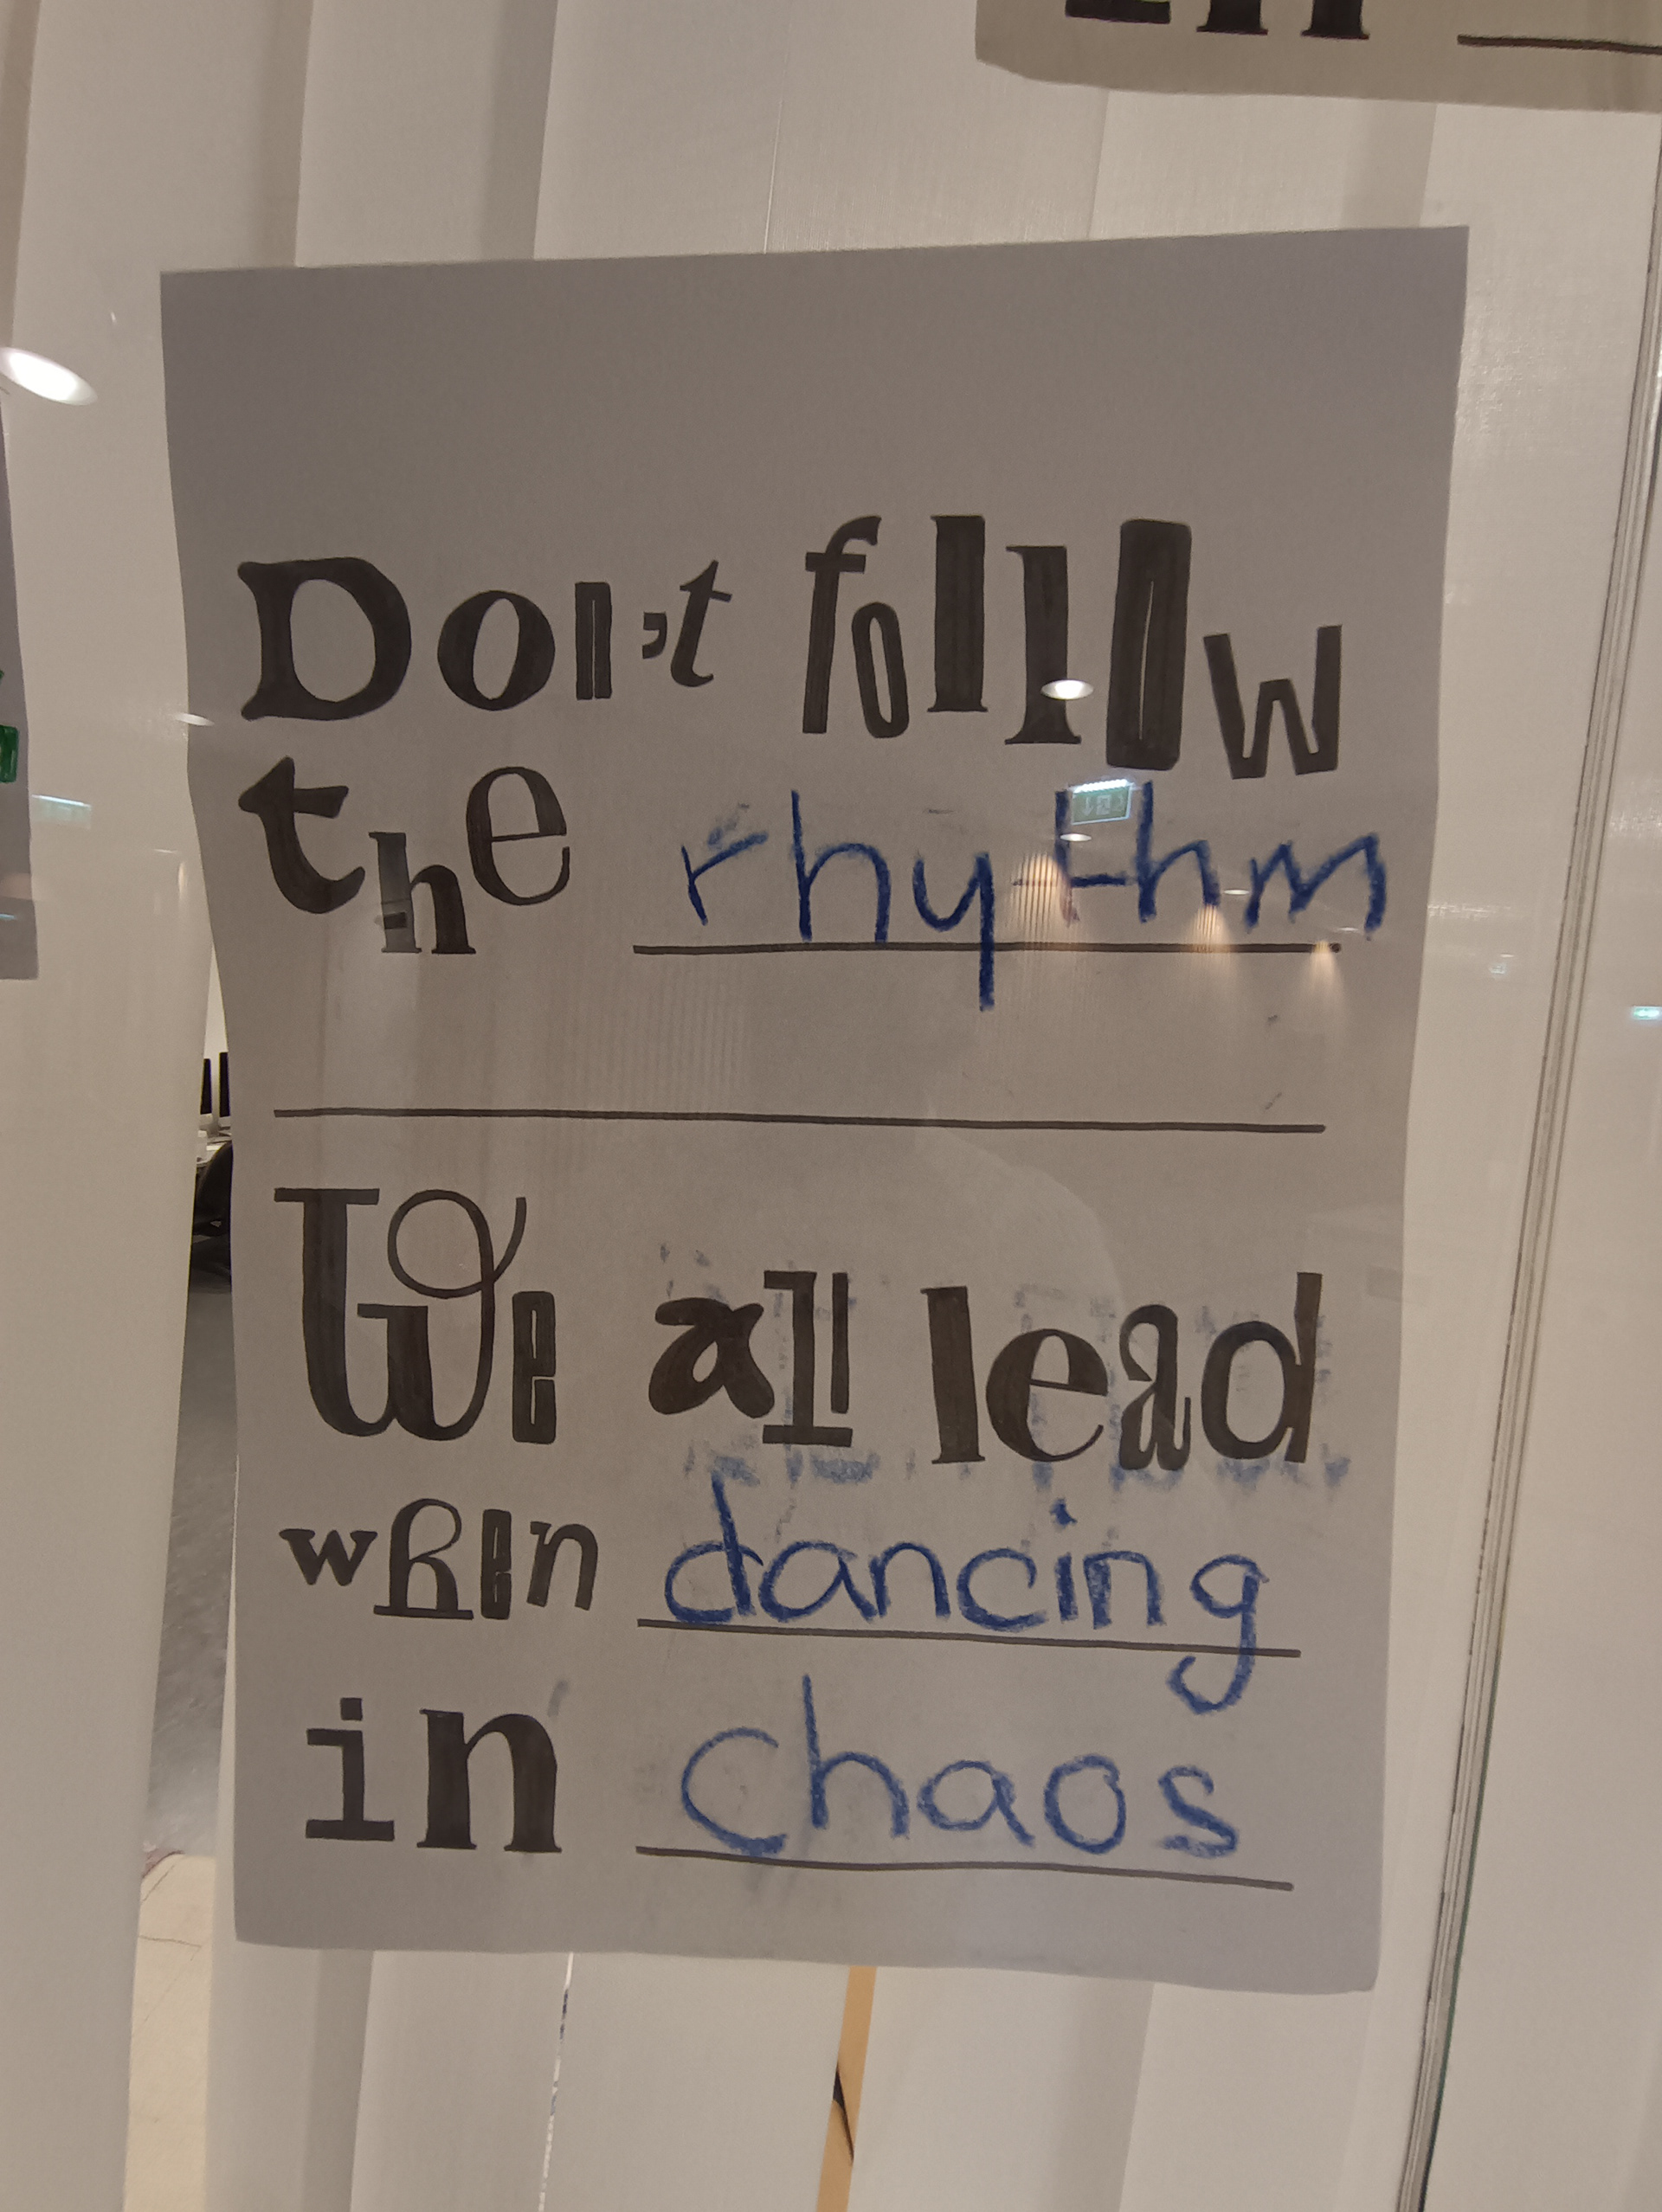 Don't follow
the rhythm
We all lead
when dancing
in chaos